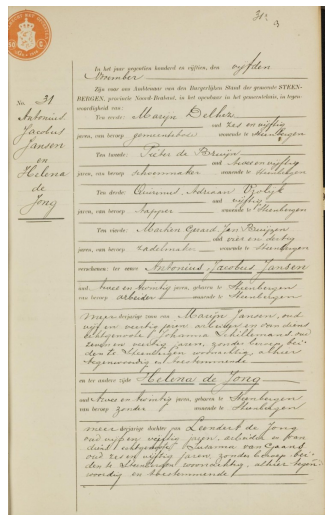 31
In het jaar negentien honderd en vijftien, den vijfden
November
zijn voor ons Ambtenaar van den Burgerlijken Stand der gemeente STEEN-
BERGEN, provincie Noord-Brabant, in het openbaar in het gemeentehuis, in tegen-
woordigheid van:
No. 31
Antonius
Jacobus
Jansen
en
Helena
de
Jong
Ten eerste Marijn Delhez
oud zes en vijftig
jaren, van beroep gemeentebode wonende te Steenbergen
Ten tweede Pieter de Bruijn
oud twee en vijftig
jaren, van beroep schoenmaker wonende te Steenbergen
Ten derde Adriaan
oud vijftig
jaren, van beroep tapper wonende te Steenbergen
Ten vierde Gerard Jan
oud vier en dertig
jaren, van beroep zadelmaker wonende te Steenbergen
verschenen: ter eenre Antonius Jacobus Jansen
oud twee en twintig jaren, geboren te Steenbergen
van beroep arbeider wonende te Steenbergen
meerderjarige zoon van Marijn Jansen, oud
vijf en veertig jaren, arbeider en van diens
echtgenoote Johanna Schillemans oud
zeven en veertig jaren, zonder beroep bei-
den te Steenbergen woonachtig, alhier
tegenwoordig en toestemmende
en ter andere zijde Helena de Jong
oud twee en twintig jaren, geboren te Steenbergen
van beroep zonder wonende te Steenbergen
meerderjarige dochter van Leendert de Jong
oud vijf en vijftig jaren, arbeider en van
diens echtgenoote van
oud zes en vijftig jaren zonder beroep bei-
den te Steenbergen woonachtig, alhier tegen-
woordig en toestemmende